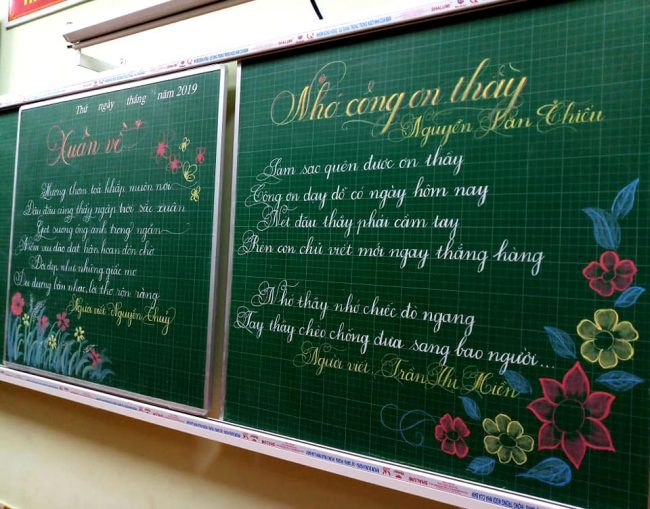 Thứ ngày tháng năm 2019
Xuân về
Hương thơm toả khắp muôn nơi
Đâu đâu cũng thấy ngập trời sắc xuân
Giọt sương óng ánh trong ngần
Niềm vui dào dạt hân hoan đón chờ
Đời đẹp như những giấc mơ
Dịu dương bản nhạc, lời thơ rộn ràng
Người viết: Nguyễn Thuỷ
Nhớ công ơn thầy
Nguyễn Văn Thiều
Làm sao quên được ơn thầy
Công ơn dạy dỗ có ngày hôm nay
Nét đầu thầy phải cầm tay
Rèn con chữ viết mới ngay thẳng hàng
Nhớ thầy nhớ chiếc đò ngang
Tay thầy chèo chống đưa sang bao người...
Người viết: Trần Thu Hiền